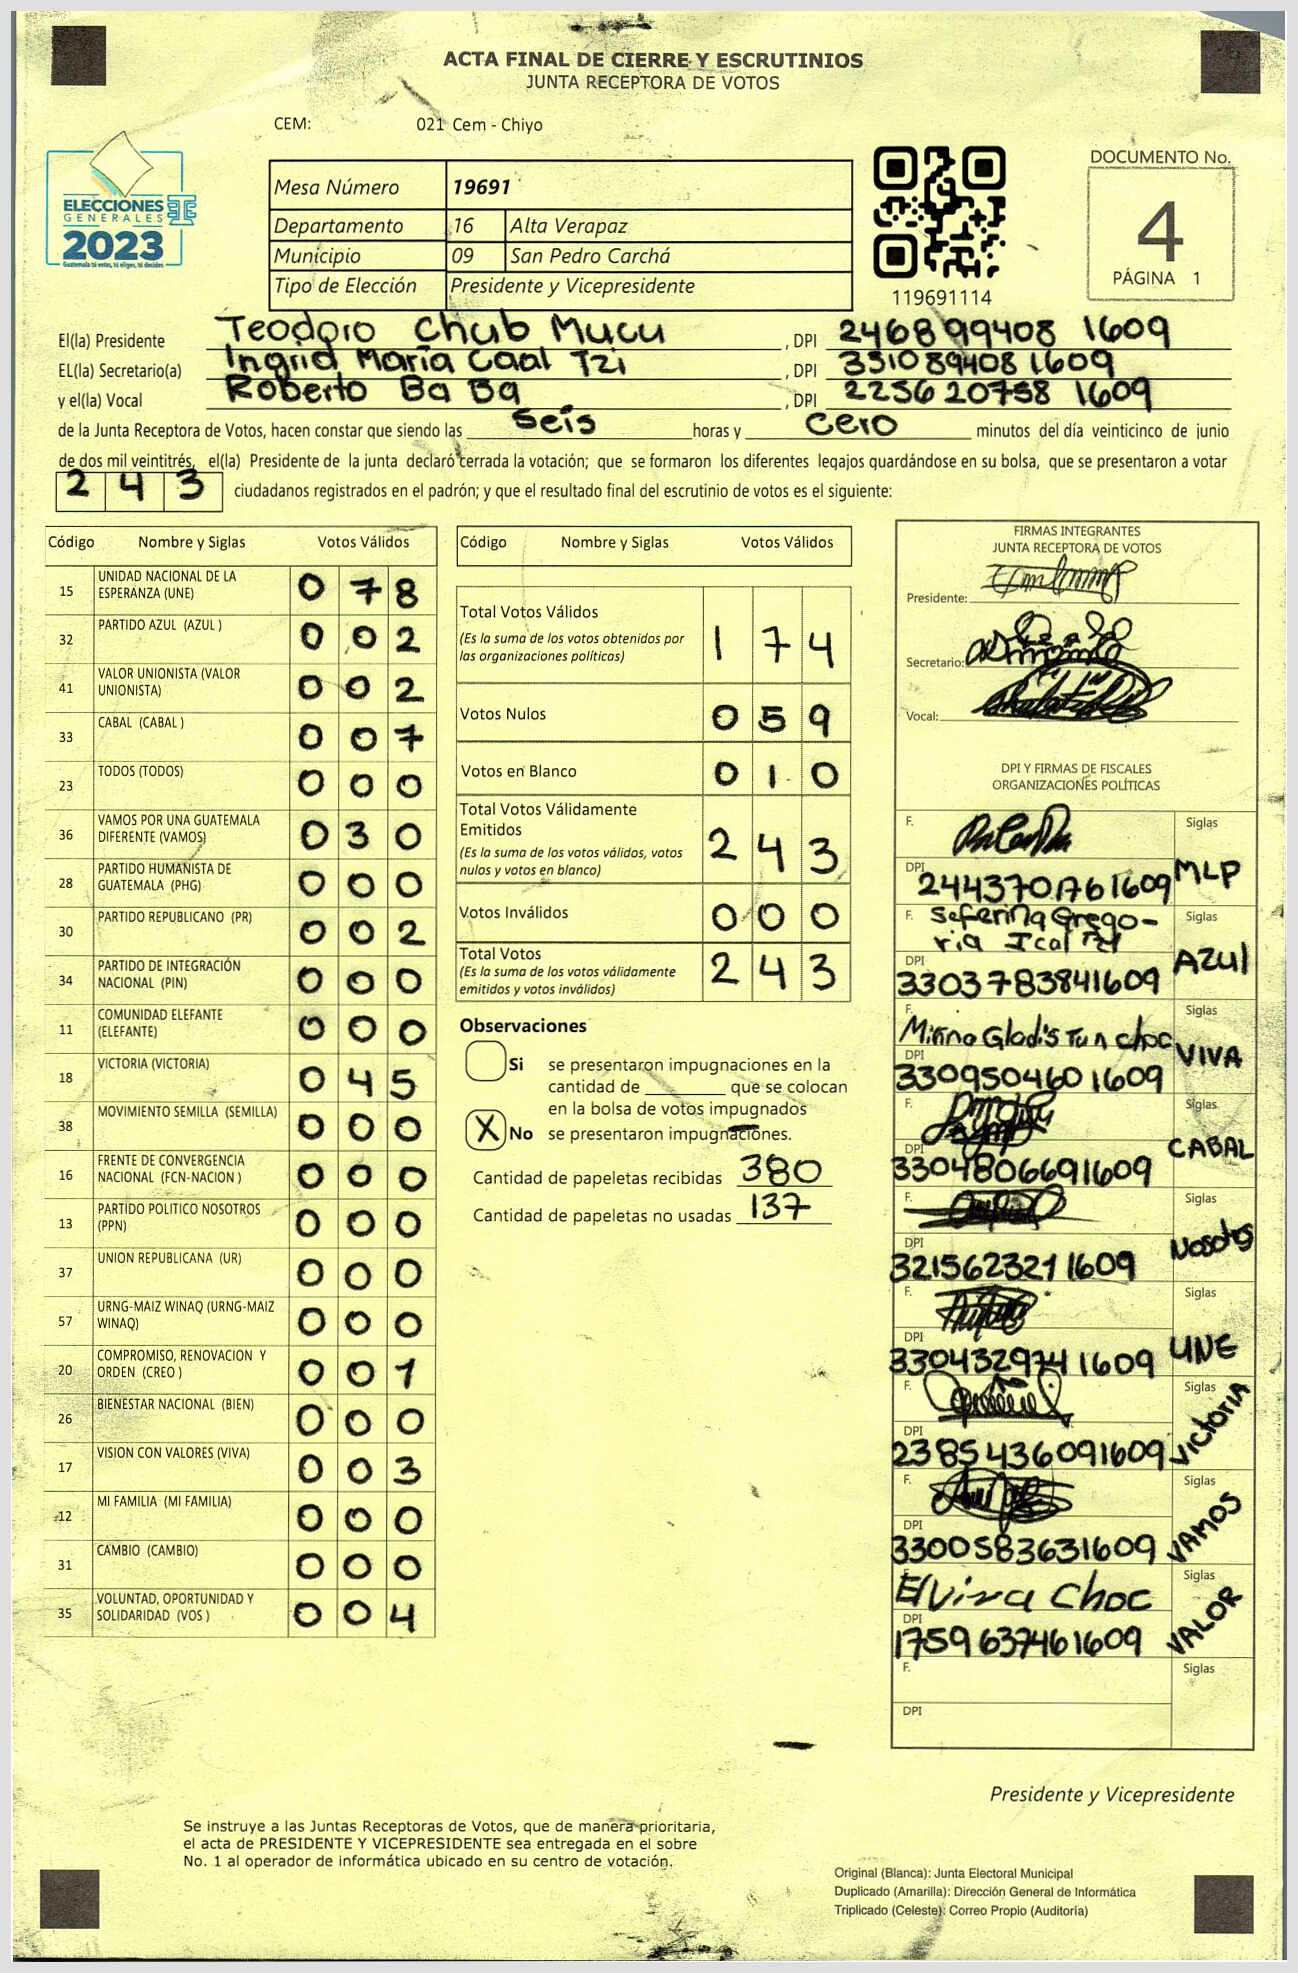 ACTA FINAL DE CIERRE Y ESCRUTINIOS
JUNTA RECEPTORA DE VOTOS
CEM: 021 Cem - Chiyo
ELECCIONES
GENERALES
2023
Guatemala tú votas, tú eliges, tú decides
Mesa Número 19691
Departamento 16 Alta Verapaz
Municipio 09 San Pedro Carchá
Tipo de Elección Presidente y Vicepresidente
119691114
DOCUMENTO No.
4
PÁGINA 1
El(la) Presidente Teodoro Chub Mucu , DPI 246899408 1609
EL(la) Secretario(a) Ingrid María Caal Tzi , DPI 331089408 1609
y el(la) Vocal Roberto Ba Ba , DPI 225620758 1609
de la Junta Receptora de Votos, hacen constar que siendo las seis horas y cero minutos del día veinticinco de junio
de dos mil veintitrés, el(la) Presidente de la junta declaró cerrada la votación; que se formaron los diferentes legajos guardándose en su bolsa, que se presentaron a votar
243 ciudadanos registrados en el padrón; y que el resultado final del escrutinio de votos es el siguiente:
Código Nombre y Siglas Votos Válidos
15 UNIDAD NACIONAL DE LA ESPERANZA (UNE) 0 7 8
32 PARTIDO AZUL (AZUL ) 0 0 2
41 VALOR UNIONISTA (VALOR UNIONISTA) 0 0 2
33 CABAL (CABAL ) 0 0 7
23 TODOS (TODOS) 0 0 0
36 VAMOS POR UNA GUATEMALA DIFERENTE (VAMOS) 0 3 0
28 PARTIDO HUMANISTA DE GUATEMALA (PHG) 0 0 0
30 PARTIDO REPUBLICANO (PR) 0 0 2
34 PARTIDO DE INTEGRACIÓN NACIONAL (PIN) 0 0 0
11 COMUNIDAD ELEFANTE (ELEFANTE) 0 0 0
18 VICTORIA (VICTORIA) 0 4 5
38 MOVIMIENTO SEMILLA (SEMILLA) 0 0 0
16 FRENTE DE CONVERGENCIA NACIONAL (FCN-NACION ) 0 0 0
13 PARTIDO POLITICO NOSOTROS (PPN) 0 0 0
37 UNION REPUBLICANA (UR) 0 0 0
57 URNG-MAIZ WINAQ (URNG-MAIZ WINAQ) 0 0 0
20 COMPROMISO, RENOVACION Y ORDEN (CREO ) 0 0 1
26 BIENESTAR NACIONAL (BIEN) 0 0 0
17 VISION CON VALORES (VIVA) 0 0 3
12 MI FAMILIA (MI FAMILIA) 0 0 0
31 CAMBIO (CAMBIO) 0 0 0
35 VOLUNTAD, OPORTUNIDAD Y SOLIDARIDAD (VOS ) 0 0 4
Código Nombre y Siglas Votos Válidos
Total Votos Válidos 1 7 4
(Es la suma de los votos obtenidos por
las organizaciones políticas)
Votos Nulos 0 5 9
Votos en Blanco 0 1 0
Total Votos Válidamente
Emitidos 2 4 3
(Es la suma de los votos válidos, votos
nulos y votos en blanco)
Votos Inválidos 0 0 0
Total Votos 2 4 3
(Es la suma de los votos válidamente
emitidos y votos inválidos)
Observaciones
Si se presentaron impugnaciones en la
cantidad de ________ que se colocan
en la bolsa de votos impugnados
X No se presentaron impugnaciones.
Cantidad de papeletas recibidas 380
Cantidad de papeletas no usadas 137
FIRMAS INTEGRANTES
JUNTA RECEPTORA DE VOTOS
Presidente:
Secretario:
Vocal:
DPI Y FIRMAS DE FISCALES
ORGANIZACIONES POLÍTICAS
F. Siglas
DPI 2443701761609 MLP
F. Seferina Grego- Siglas
ria Ical Tzi
DPI 3303783841609 AZUL
F. Mirna Gladis Tun choc Siglas
DPI 3309504601609 VIVA
F. Siglas
DPI 3304806691609 CABAL
F. Siglas
DPI 321562321 1609 Nosotos
F. Siglas
DPI 330432974 1609 UNE
F. Siglas
DPI 2385436091609 Victoria
F. Siglas
DPI 3300583631609 VAMOS
F. Elvira Choc Siglas
DPI 1759637461609 VALOR
F. Siglas
DPI
Presidente y Vicepresidente
Se instruye a las Juntas Receptoras de Votos, que de manera prioritaria,
el acta de PRESIDENTE Y VICEPRESIDENTE sea entregada en el sobre
No. 1 al operador de informática ubicado en su centro de votación.
Original (Blanca): Junta Electoral Municipal
Duplicado (Amarilla): Dirección General de Informática
Triplicado (Celeste): Correo Propio (Auditoría)